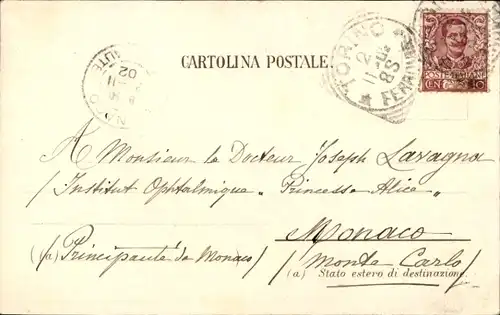 CARTOLINA POSTALE.
TORINO
FERROVIA
POSTE ITALIANE
CEN 10
A Monsieur le Docteur Joseph Lavagna
/Institut Ophtalmique „Princesse Alice„
Monaco
(/a) Principauté de Monaco/ /Monte Carlo/
(a) Stato estero di destinazione.